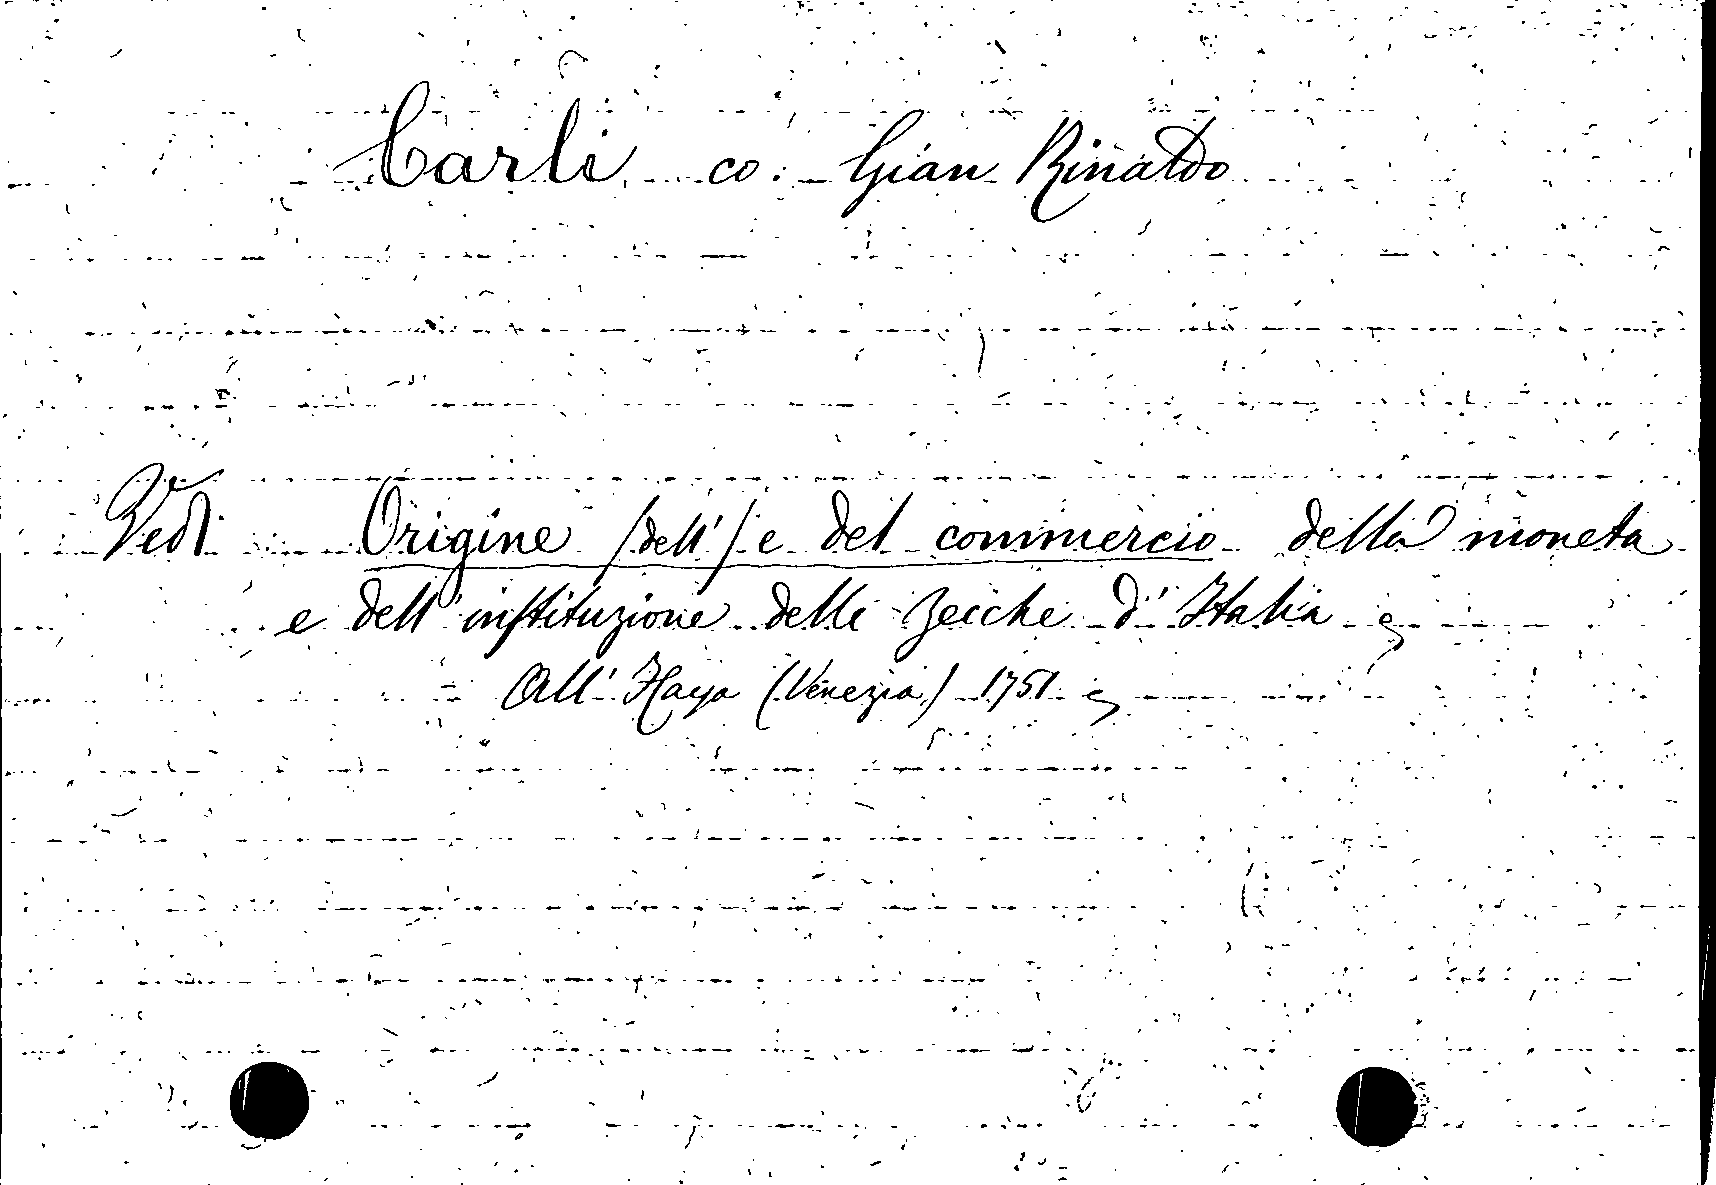 Carli co: Gian Rinaldo
Vedi Origine /dell'/ e del commercio della moneta
e dell' instituzione delle Zecche d' Italia
All' Haya (Venezia) 1751